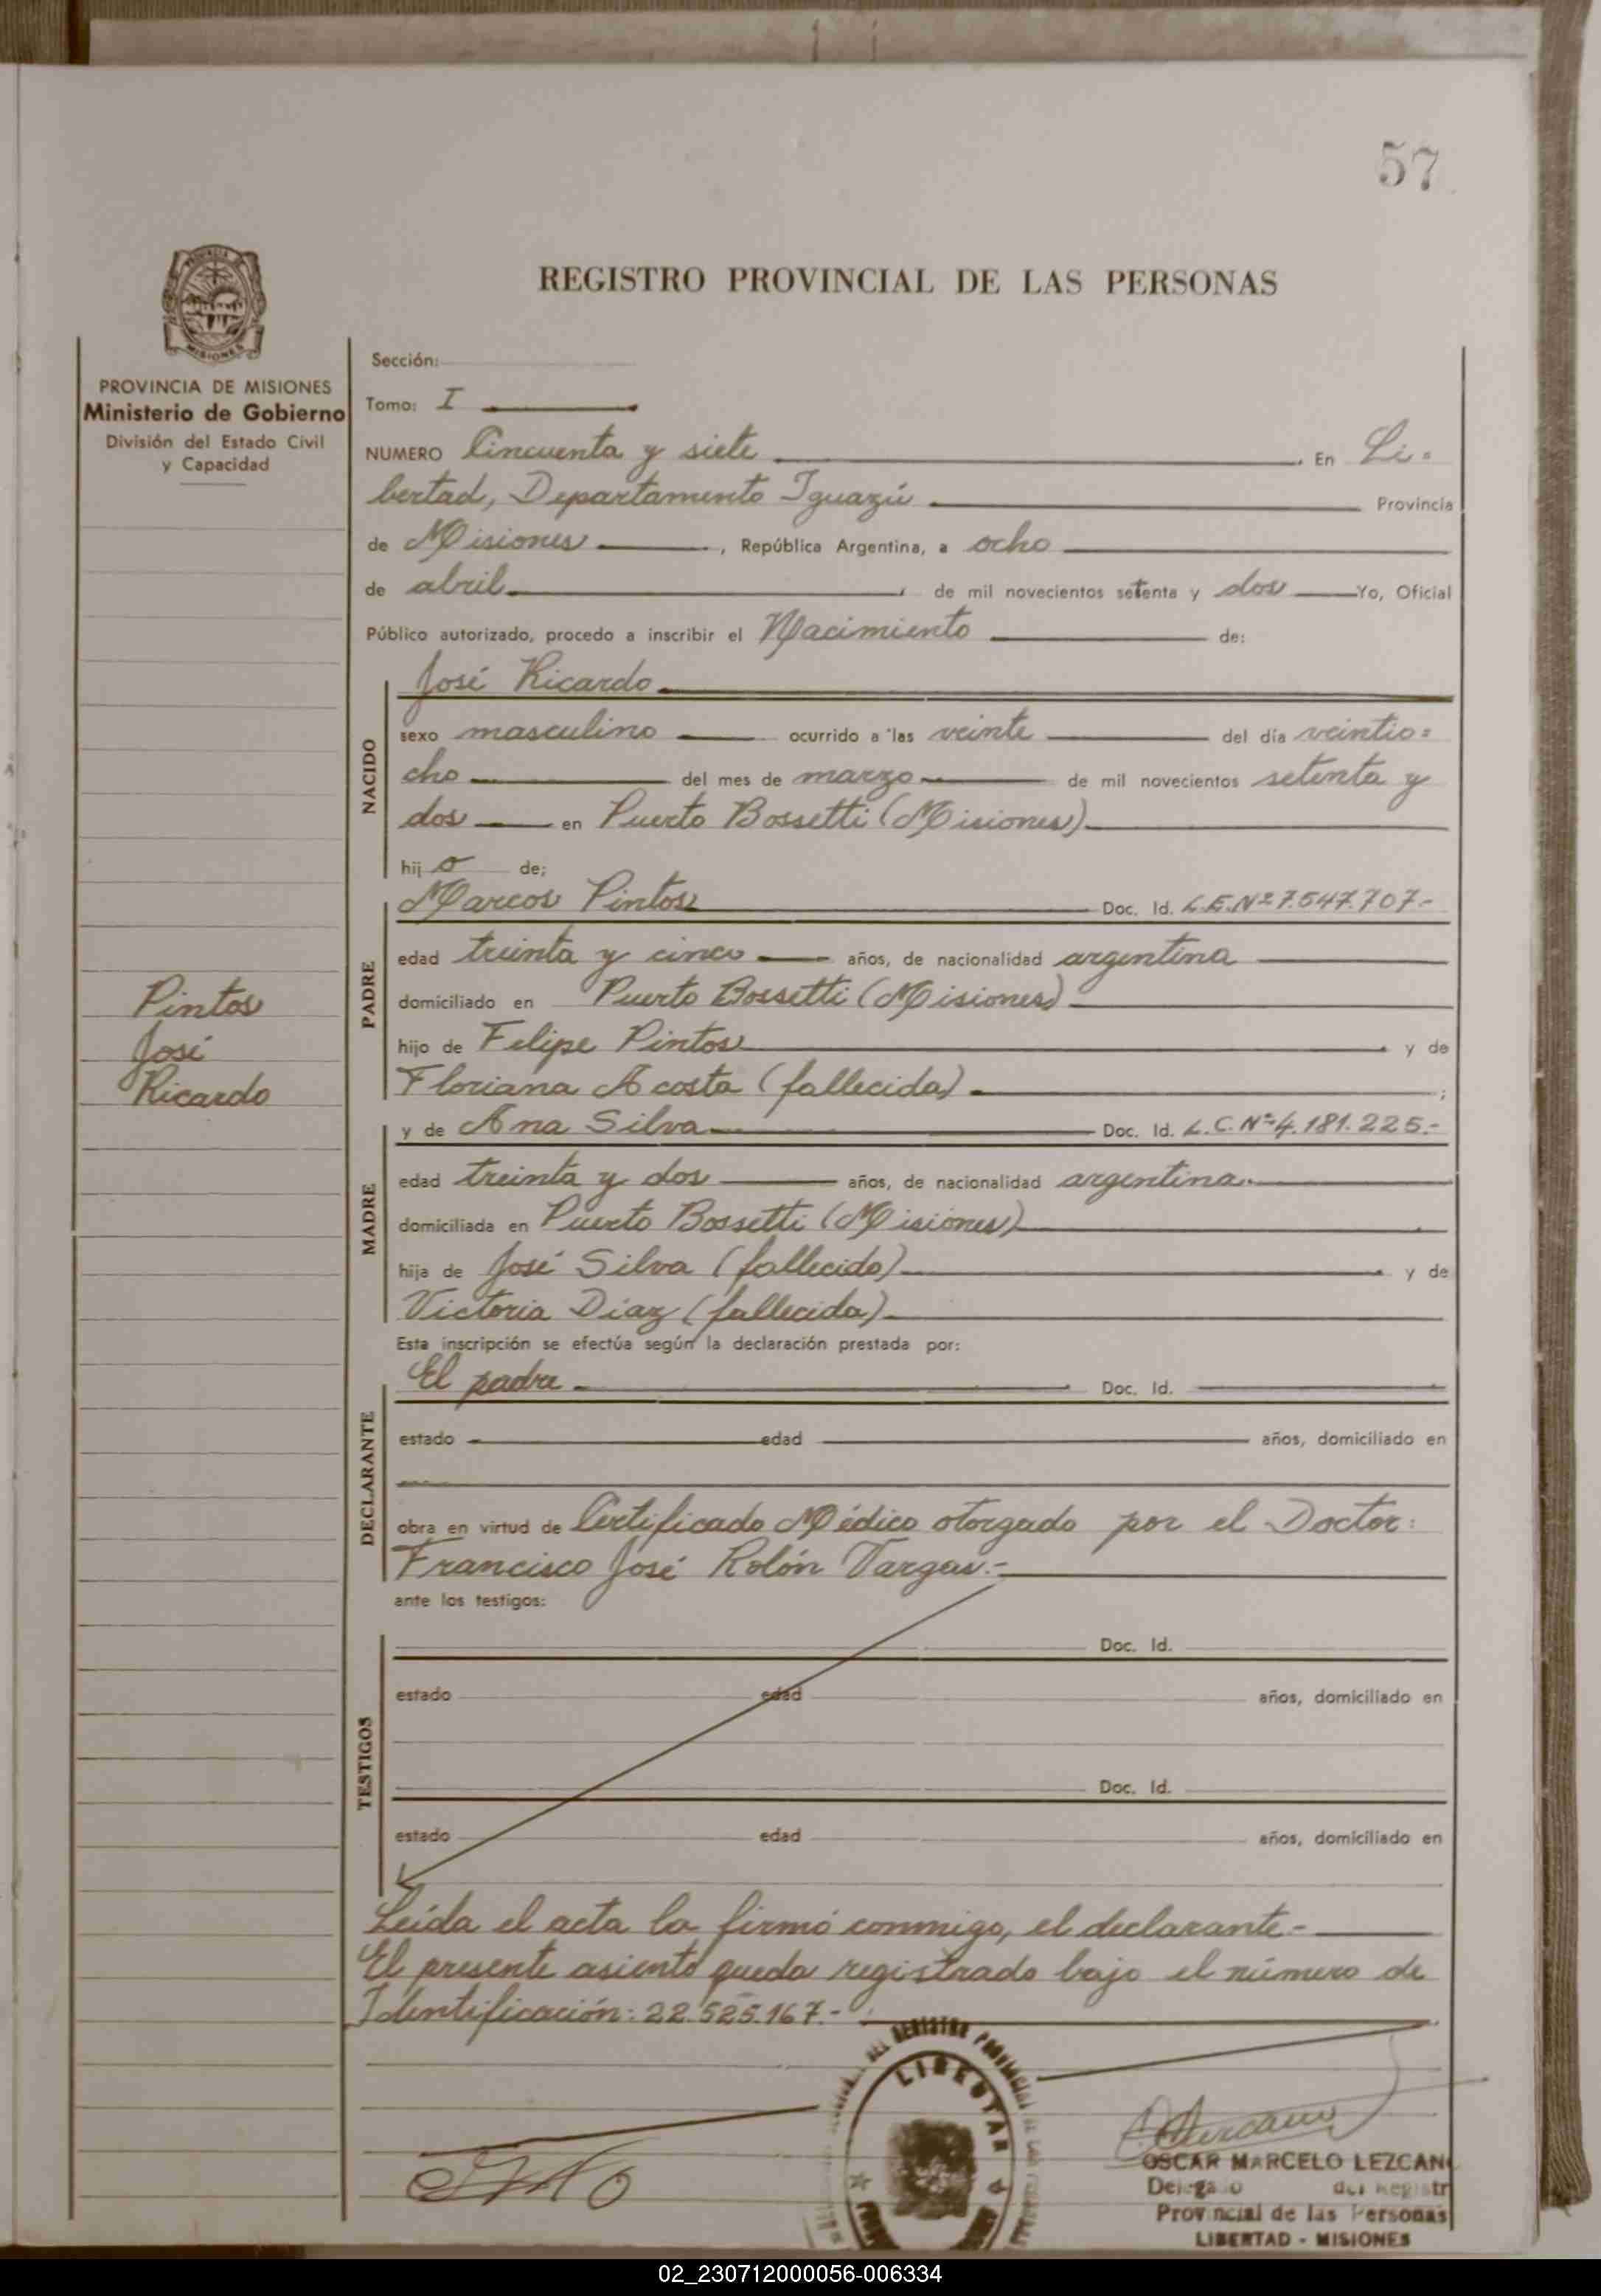 57
REGISTRO PROVINCIAL DE LAS PERSONAS
MISIONES
PROVINCIA DE MISIONES
Ministerio de Gobierno
División del Estado Civil
y Capacidad
Sección:
Tomo: I
NUMERO Cincuenta y siete. En Li-
bertad, Departamento Iguazú Provincia
de Misiones, República Argentina, a ocho
de abril, de mil novecientos setenta y dos Yo, Oficial
Público autorizado, procedo a inscribir el Nacimiento de:
José Ricardo
NACIDO
sexo masculino ocurrido a las veinte del día veintio=
cho del mes de marzo de mil novecientos setenta y
dos en Puerto Bossetti (Misiones)
hijo de;
Marcos Pintos Doc. Id. L.E.Nº 7.547.707.-
PADRE
edad treinta y cinco años, de nacionalidad argentina
domiciliado en Puerto Bossetti (Misiones)
hijo de Felipe Pintos y de
Floriana Acosta (fallecida) ;
y de Ana Silva Doc. Id. L.C. Nº 4.181.225.-
MADRE
edad treinta y dos años, de nacionalidad argentina.
domiciliada en Puerto Bossetti (Misiones)
hija de José Silva (fallecido) y de
Victoria Díaz (fallecida)
Pintos
José
Ricardo
Esta inscripción se efectúa según la declaración prestada por:
El padre Doc. Id.
DECLARANTE
estado edad años, domiciliado en
obra en virtud de Certificado Médico otorgado por el Doctor:
Francisco José Rolón Vargas.-
ante los testigos:
TESTIGOS
Doc. Id.
estado edad años, domiciliado en
Doc. Id.
estado edad años, domiciliado en
Leída el acta la firmó conmigo, el declarante.-
El presente asiento queda registrado bajo el número de
Identificación: 22.525.167.-
DEL REGISTRO PROVINCIAL DE LAS
LIBERTAD
OSCAR MARCELO LEZCANO
Delegado del Registr
Provincial de las Personas
LIBERTAD - MISIONES
02_230712000056-006334